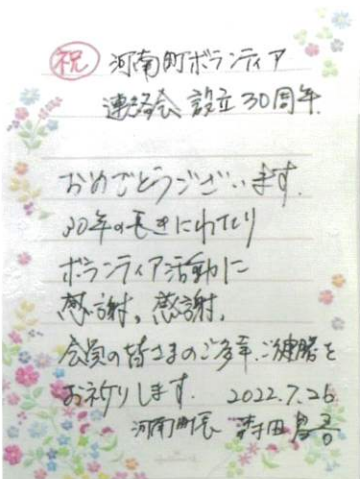 祝 河南町ボランティア
連絡会 設立30周年
おめでとうございます.
30年の長きにわたり
ボランティア活動に
感謝。感謝.
会員の皆さまのご多幸.ご健勝を
お祈りします. 2022.7.26
河南町長 森田昌吾